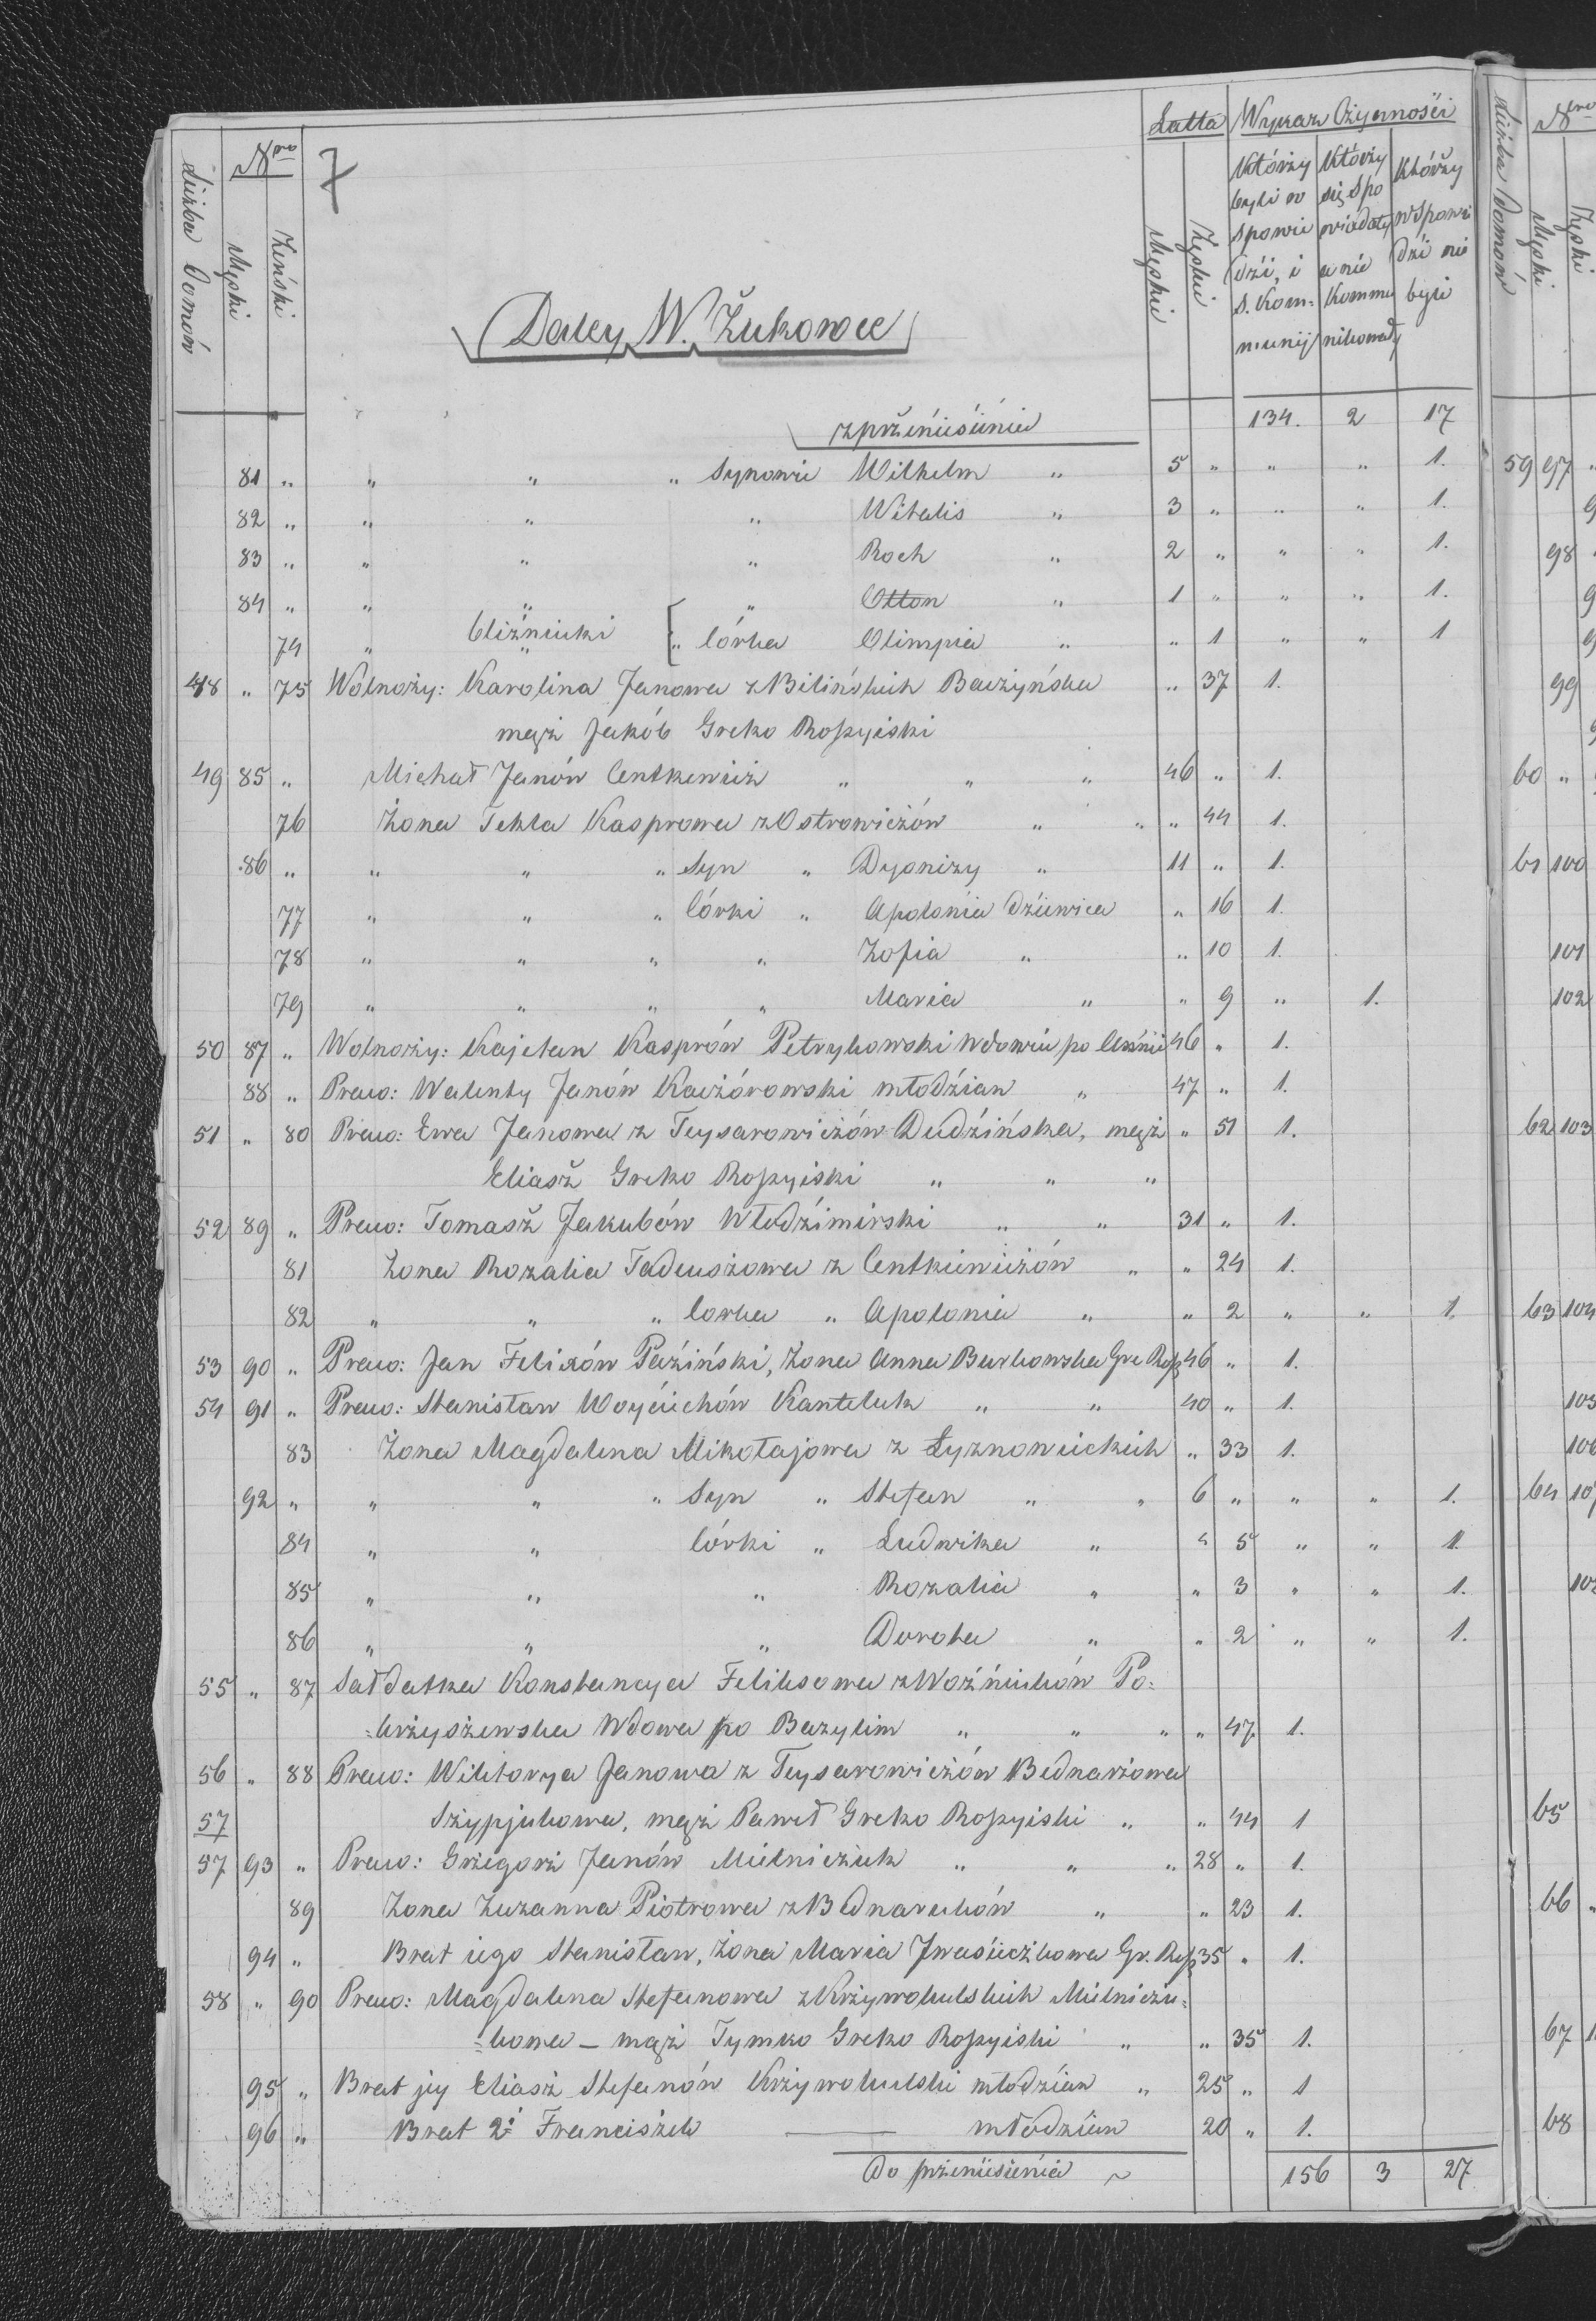 7
Liczba Domów
Nro
Męski
Żeński
Latta
Męskie
Żeńskie
Wykaz Czynności
Którzy byli w Spowie dzi, i S. Kom= munij
Którzy się Spo wiadały a nie Kommu nikowały
Którzy w Spowi dzi nie byli
Daley W. Żukowce
z przeniesienia 134. 2 17
81 " " " " Synowie Wilhelm " 5 " " " 1.
82 " " " " Witalis " 3 " " " 1.
83 " " " " Roch " 2 " " " 1.
84 " " " " Otton " 1 " " " 1.
74 " bliźniaki " Córka Olimpia " " 1 " " 1
48 " 75 Wolnoży: Karolina Janowa z Bilińskich Baczyńska " 37 1.
mąż Jakób Greko Rossyiski
49 85 " Michał Janów Centkewicz " " " 46 " 1.
76 Żona Tekla Kasprowa z Ostrowiczów " " " 44 1.
86 " " " " Syn " Dyonizy " 11 " 1.
77 " " " Córki " Apolonia dziewica " 16 1.
78 " " " " Zofia " " 10 1.
79 " " " " Maria " " 9 " 1.
50 87 " Wolnoży: Kajetan Kasprów Petrykowski Wdowiec po 46 " 1.
88 " Praco: Walenty Janów Kaczórowski młodzian " 47 " 1.
51 " 80 Praco: Ewa Janowa z Teysarowiczów Dudzińska, mąż " 51 1.
Eliasz Greko Rossyiski " " "
52 89 " Praco: Tomasz Jakubów Włodzimirski " " 31 " 1.
81 Żona Rozalia Tadeuszowa z Centkiewiczów " " 24 1.
82 " " " Corka " Apolonia " " 2 " " 1.
53 90 " Praco: Jan Felixów Paziński, Żona Anna Burkowska Gre Ross 46 " 1.
54 91 " Praco: Stanisław Woyciechów Kanteluk " " 40 " 1.
83 Żona Magdalena Mikołajowa z Łyznowieckich " 33 1.
92 " " " " Syn " Stefan " " 6 " " " 1.
84 " " Córki " Ludwika " " 5 " " 1.
85 " " " Rozalia " " 3 " " 1.
86 " " " Dorota " " 2 " " 1.
55 " 87 Sałdatka Konstancya Feliksowa z Woźniuków Po=
=krzyszewska Wdowa po Bazylim " " " " 47 1.
56 " 88 Praco: Wiktorya Janowa z Teysarowiczów Bednarzowa
57 Szypjukowa, mąż Paweł Greko Rossyiski " " 44 1
57 93 " Praco: Grzegorz Janów Mielniczuk " " " 28 " 1.
89 Żona Zuzanna Piotrowa z Bednaruków " " 23 1.
94 " Brat iego Stanisław, Żona Maria Iwasieczkowa Gr. Ross 35 " 1.
58 " 90 Praco: Magdalena Stefanowa z Krzywokulskich Mielniczu=
=kowa – mąż Tymko Greko Rossyiski " " 35 1.
95 " Brat jey Eliasz Stefanów Krzywokulski młodzian " 25 " 1
96 " Brat 2i Franciszek — młodzian 20 " 1.
do przeniesienia ~ 156 3 27
Liczba Domów
Nro
Męski
Żęski
59 97 "
98
99
60 "
61 100
101
102
62 103
63 104
105
106
64 107
65
66 "
67
68